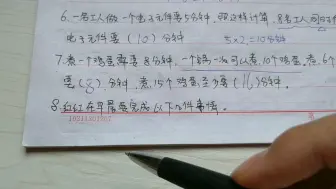 6.一名工人做一个电子元件要5分钟,照这样计算,8名工人同时
电子元件要(10)分钟 5×2=10分钟
7.煮一个鸡蛋需要8分钟,一个锅一次可以煮10个鸡蛋,煮6个
要(8)分钟,煮15个鸡蛋至少要(16)分钟。
8.红红在早晨要完成以下几件事情。